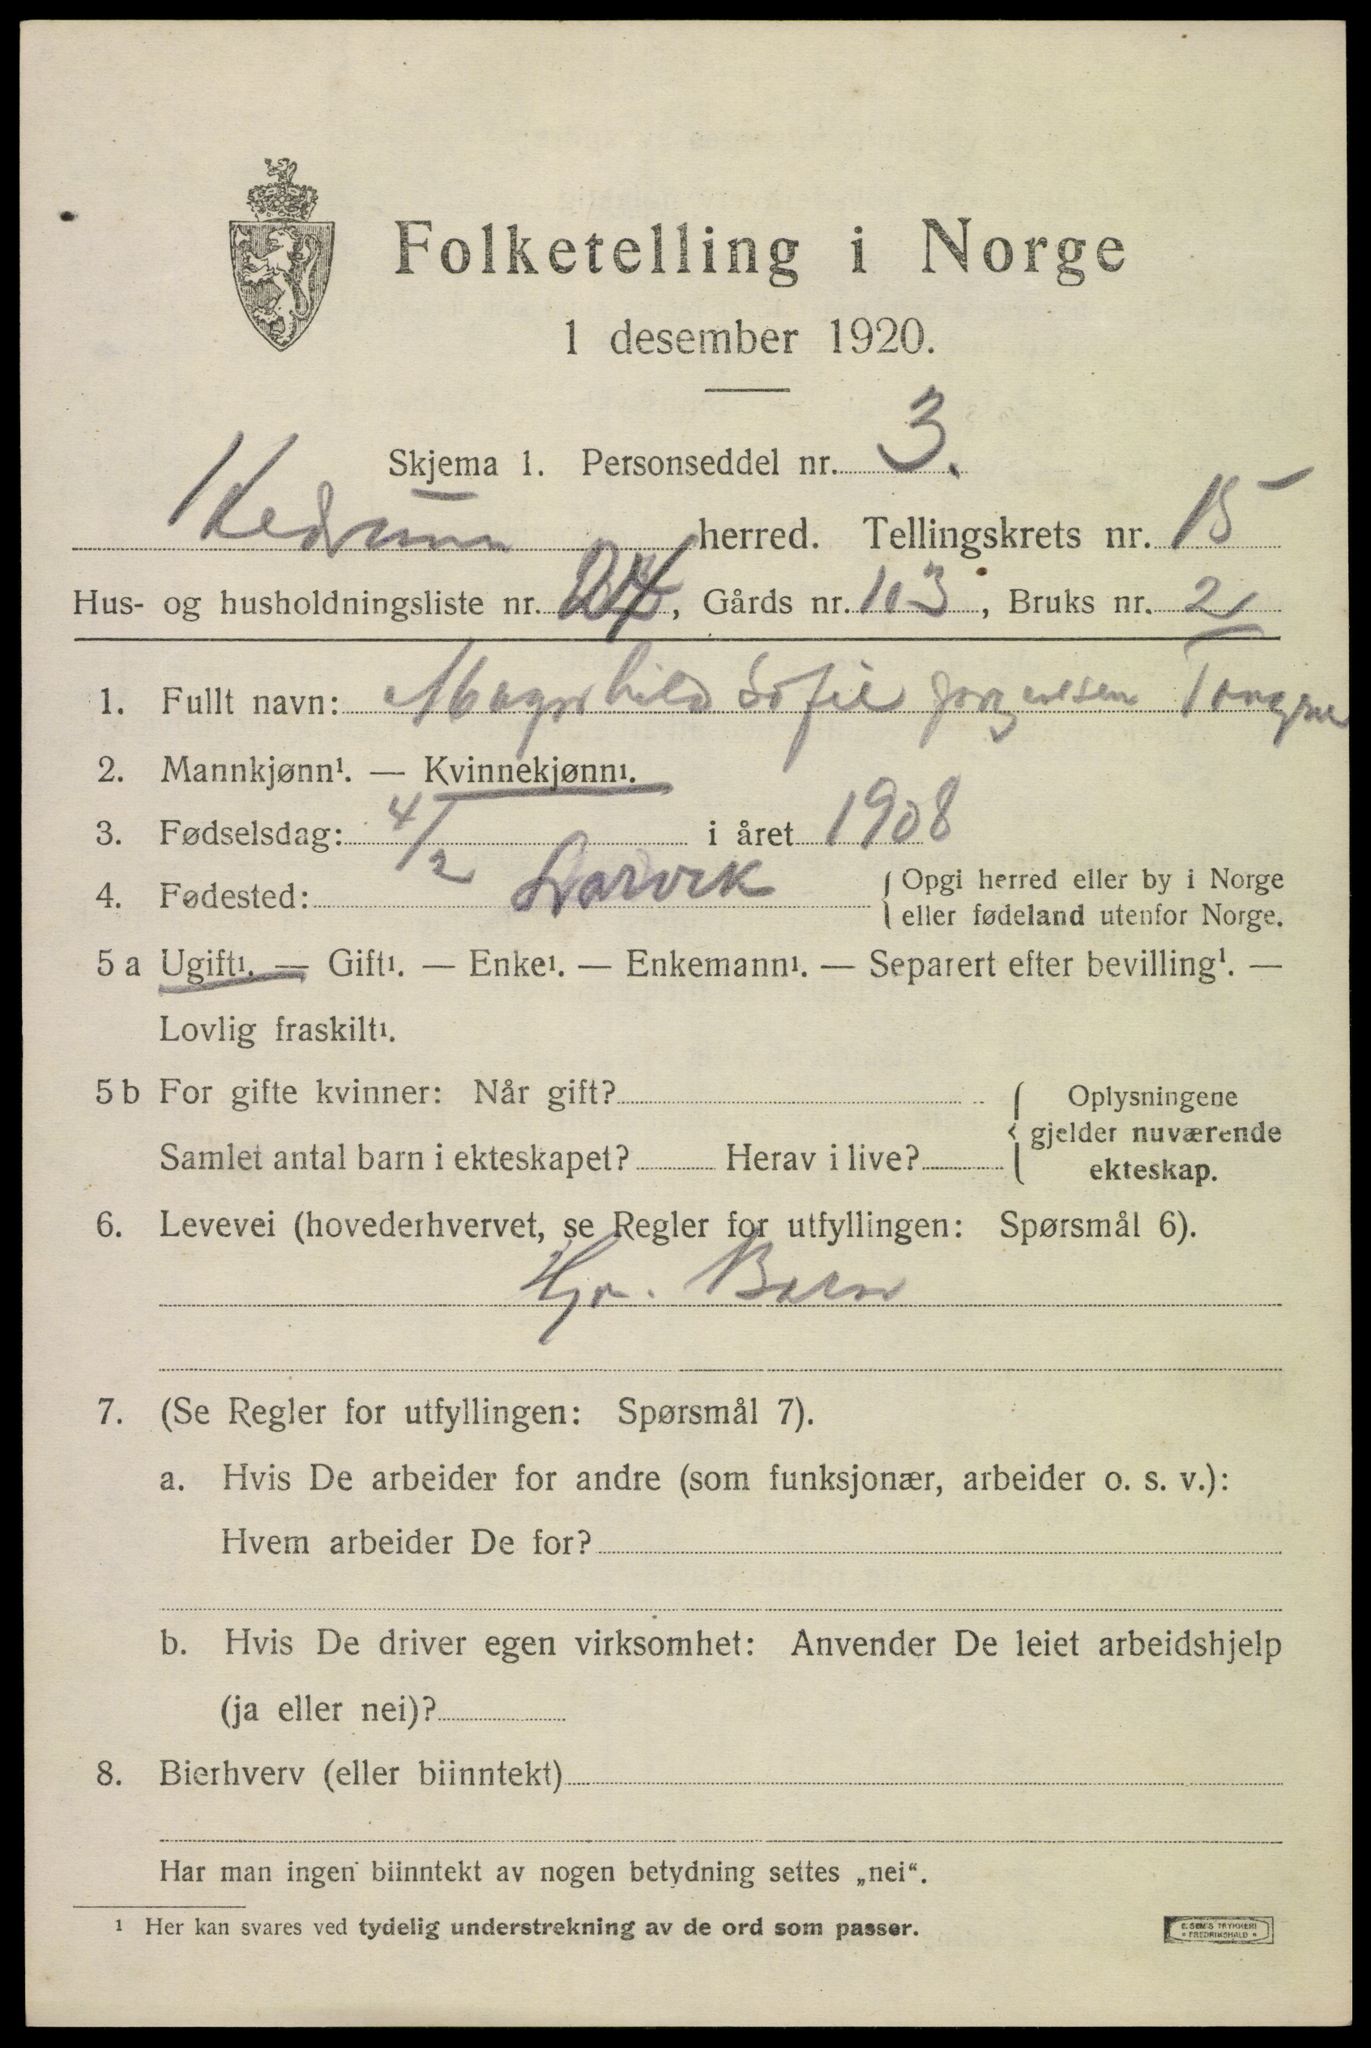 Folketelling i Norge
1 desember 1920.
Skjema 1. Personseddel nr. 3.
Hedrum herred. Tellingskrets nr. 15
Hus- og husholdningsliste nr. 24, Gårds nr. 103, Bruks nr. 2
1. Fullt navn: Magnhild Sofie Jørgensen
2. Mannkjønn¹. — Kvinnekjønn¹.
3. Fødselsdag: 4/2 i året 1908
4. Fødested: Larvik { Opgi herred eller by i Norge
eller fødeland utenfor Norge.
5 a Ugift¹. — Gift¹. — Enke¹. — Enkemann¹. — Separert efter bevilling¹. —
Lovlig fraskilt¹.
5 b For gifte kvinner: Når gift? { Oplysningene
gjelder nuværende
Samlet antal barn i ekteskapet? Herav i live? ekteskap.
6. Levevei (hovederhvervet, se Regler for utfyllingen: Spørsmål 6).
Hj. Barn
7. (Se Regler for utfyllingen: Spørsmål 7).
a. Hvis De arbeider for andre (som funksjonær, arbeider o. s. v.):
Hvem arbeider De for?
b. Hvis De driver egen virksomhet: Anvender De leiet arbeidshjelp
(ja eller nei)?
8. Bierhverv (eller biinntekt)
Har man ingen biinntekt av nogen betydning settes „nei“.
¹ Her kan svares ved tydelig understrekning av de ord som passer.
E. SEM'S TRYKKERI
* FREDRIKSHALD *